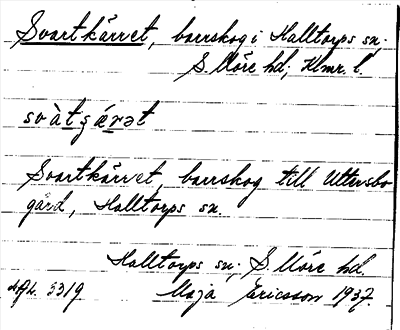 Svartkärret, barrskog i Halltorps sn.
S. Möre hd; Klmr. l.
svàtʒǽrət
Svartkärret, barrskog till Uttersbo
gård, Halltorps sn.
Halltorps sn; S. Möre hd.
5319 Maja Ericsson 1937.